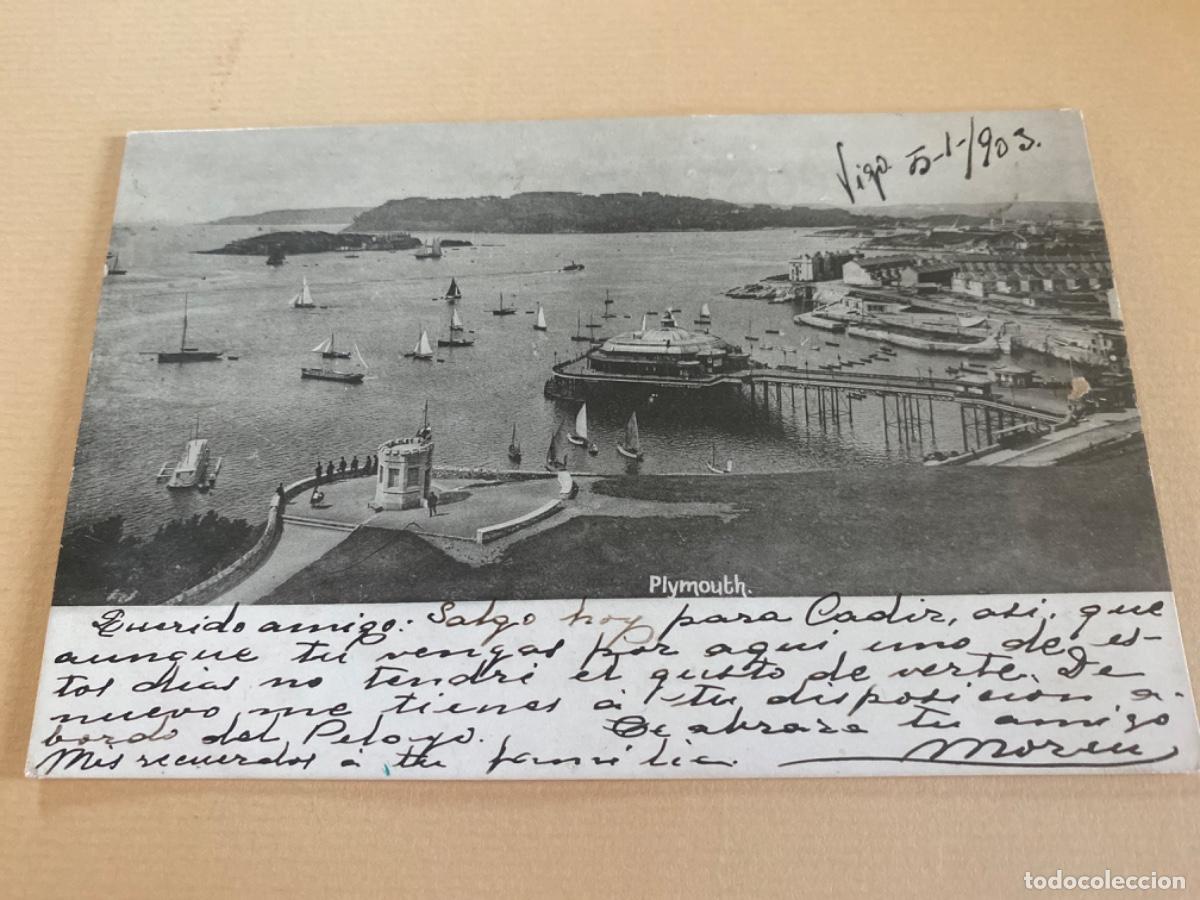 Vigo. 5-1-/903.
Plymouth.
Querido amigo: Salgo hoy para Cadiz, asi, que
aunque tu vengas por aqui uno de es-
tos dias no tendré el gusto de verte. De
nuevo me tienes á tu disposicion a-
bordo del Pelayo. Te abraza tu amigo
Mis recuerdos á tu familia. Moreu
todocoleccion